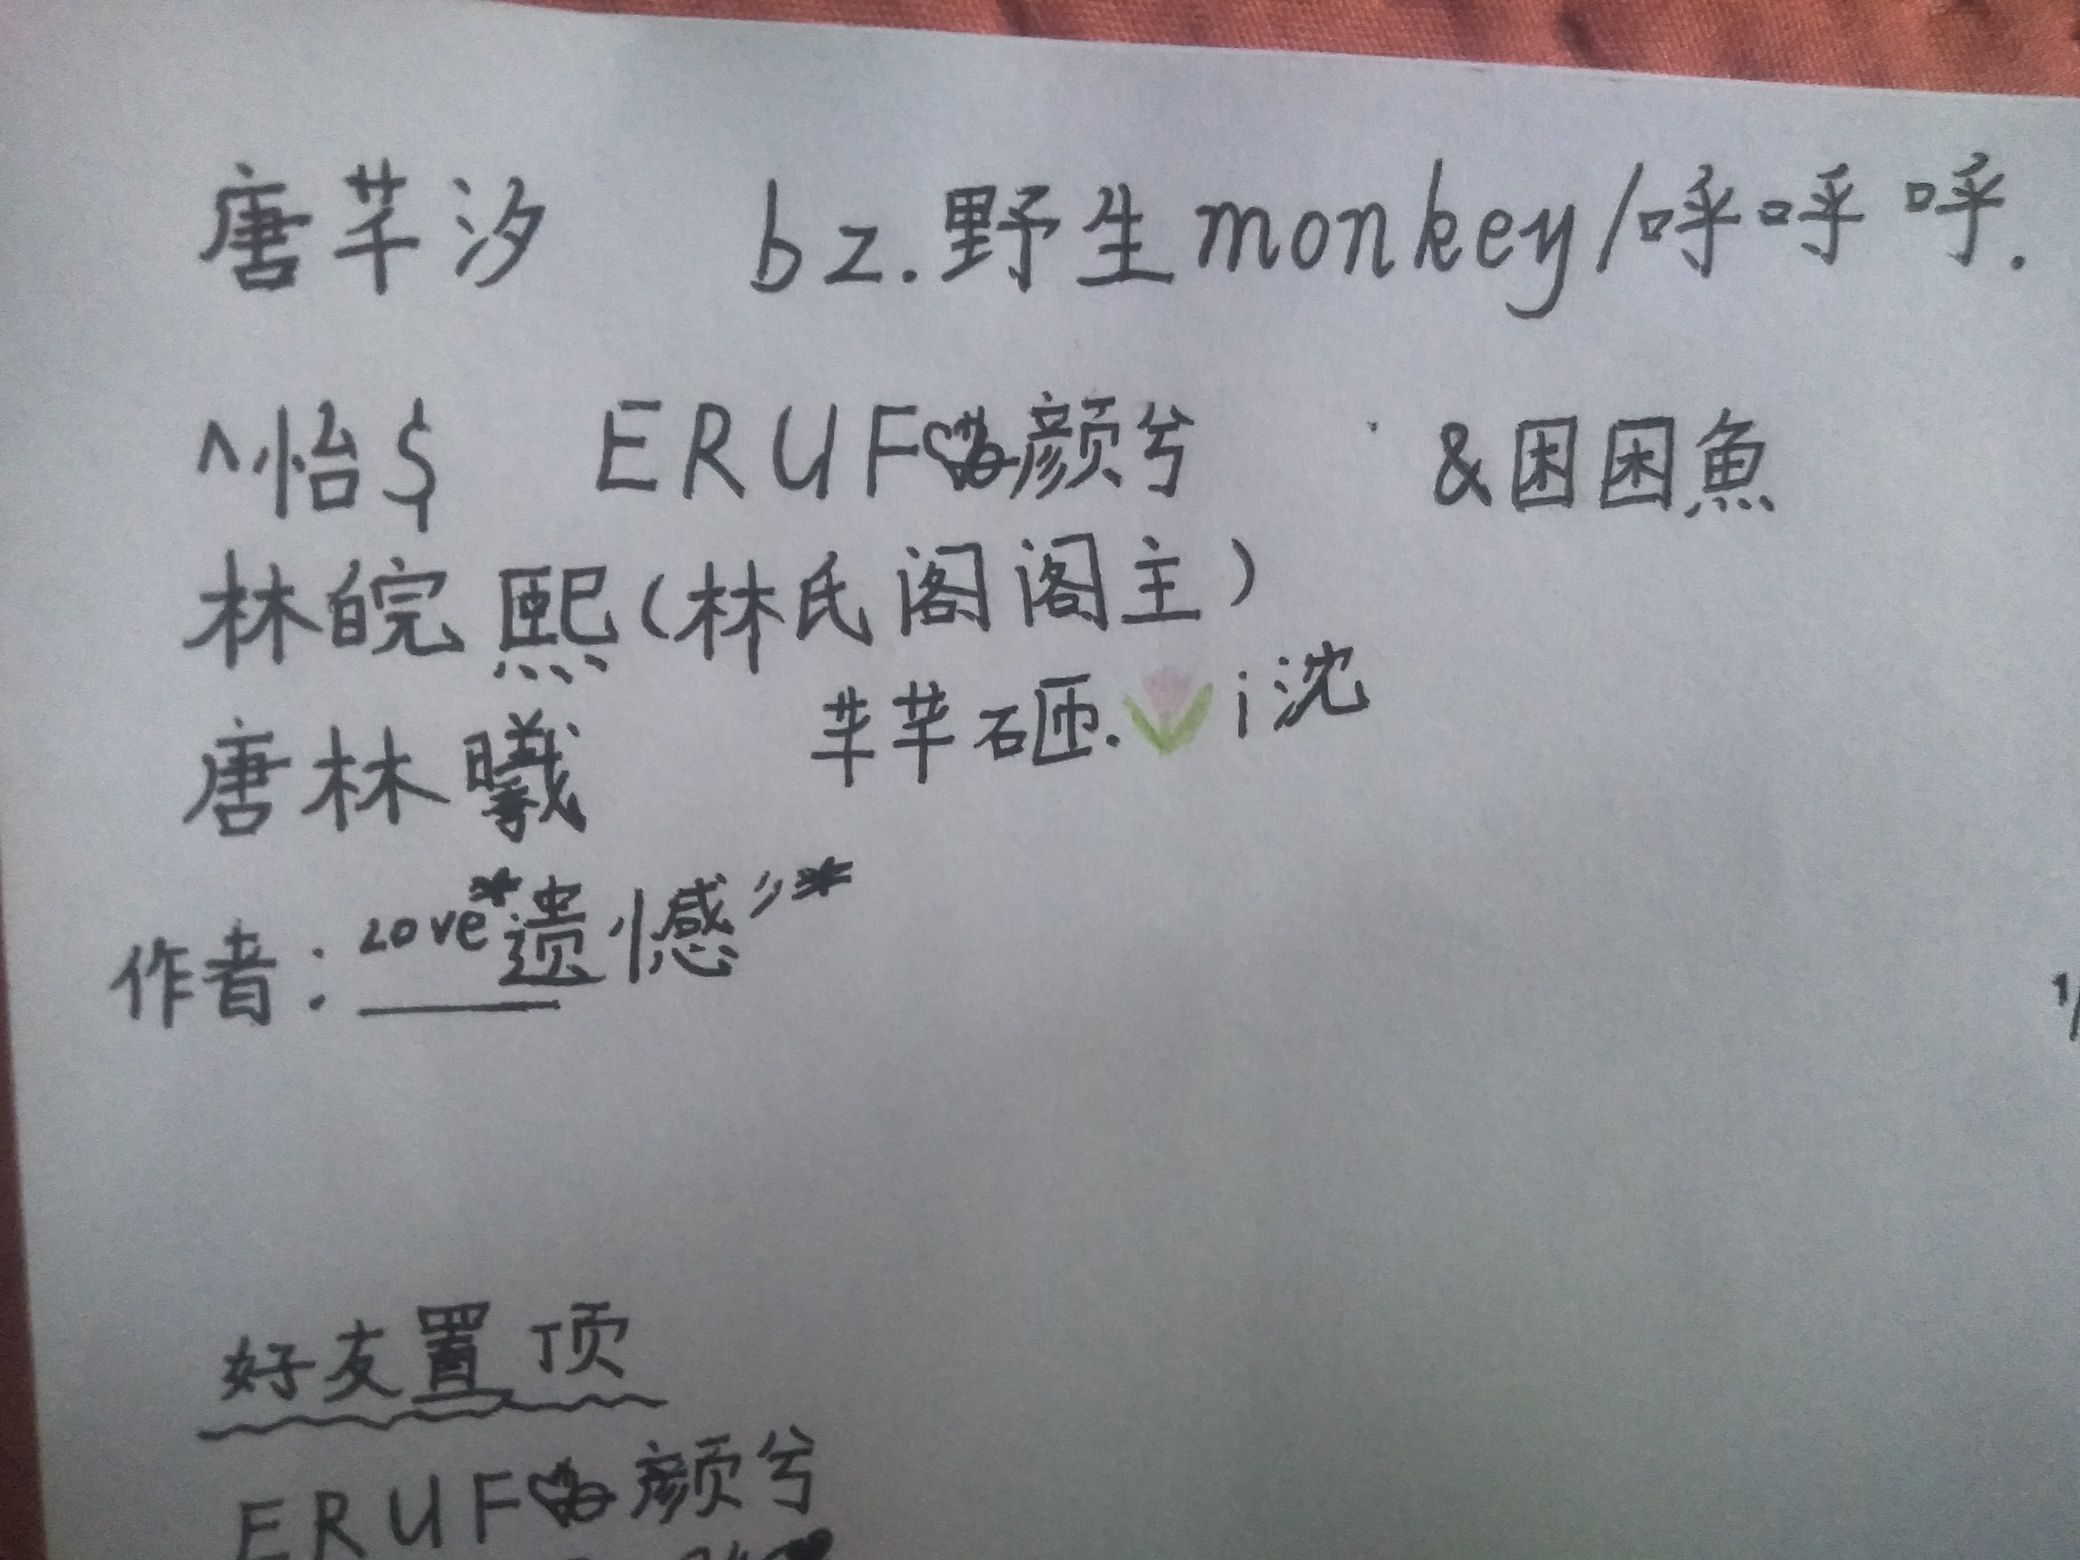 唐芊汐 bz.野生monkey/呼呼呼.
^怡$ ERUF 颜兮 &困困魚
林皖熙(林氏阁阁主)
唐林曦 芊芊砸. i沈
作者: Love*遗憾〃*
好友置顶
ERUF 颜兮